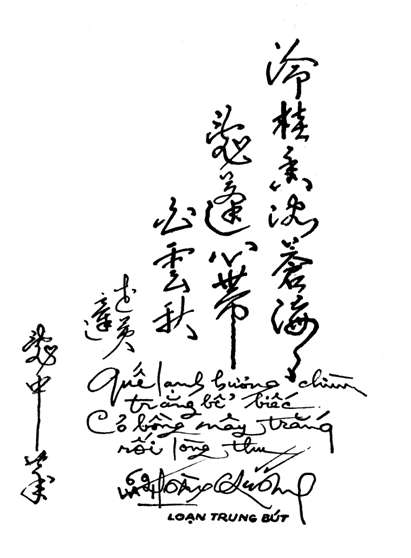 冷桂香沈蒼海月
亂蓬心帶
白雲秋
亂中筆
Quế lạnh hương chìm
trăng bể biếc
Cỏ bồng mây trắng
rối lòng thu
Hoàng Chương
LOẠN TRUNG BÚT